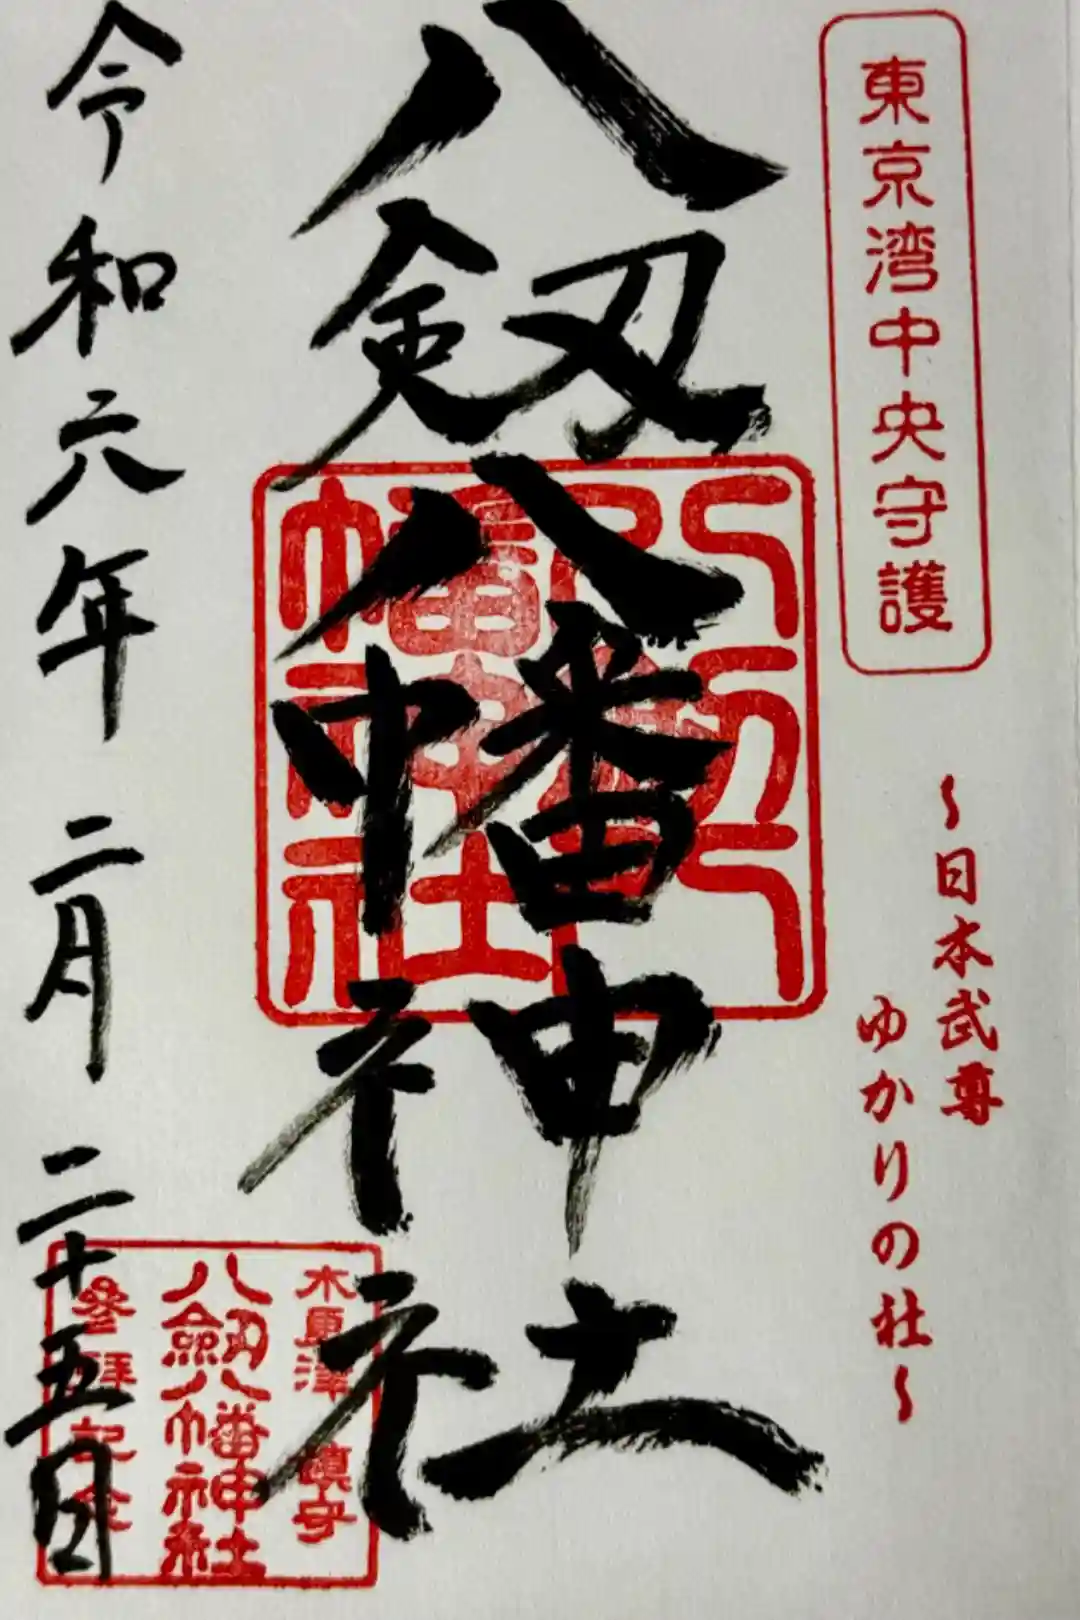 東京湾中央守護
~日本武尊
ゆかりの社~
八剱八幡神社
八剱八幡神社
木更津 鎮守
八劔八幡神社
参拝記念
令和六年二月二十五日